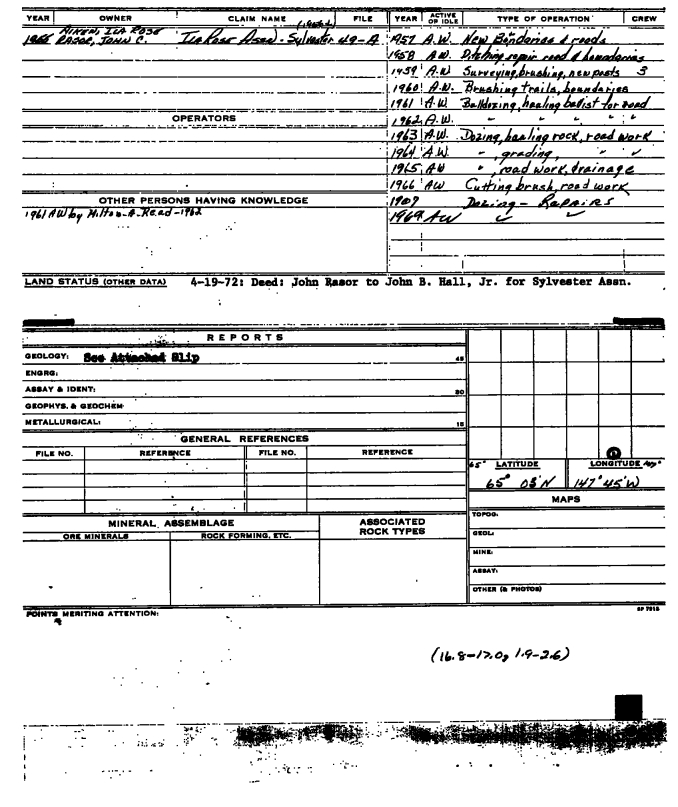 YEAR OWNER CLAIM NAME FILE YEAR ACTIVE OR IDLE TYPE OF OPERATION CREW
AIKEN, ILA ROSE
RASOR, JOHN C. Ila Rose Assn - Sylvester 49-A 1957 A.W. New Bondaries & roads
1958 AW. Ditching repair road & boundaries
1959 A.W. Surveying, brushing, new posts 3
1960 A.W. Brushing trails, boundaries
1961 A.W. Balldozing, healing ballist for road
OPERATORS 1962 A.W. " " " "
1963 A.W. Dozing, haaling rock, road work
1964 A.W. ", grading, " "
1965 AW ", road work, drainage
1966 AW Cutting brush, road work
OTHER PERSONS HAVING KNOWLEDGE Dozing - REPAIRS
1961 AW by Milton A. Read - 1962 1969 AW
LAND STATUS (OTHER DATA) 4-19-72: Deed: John Rasor to John B. Hall, Jr. for Sylvester Assn.
REPORTS
GEOLOGY: See Attached Slip 45
ENGRG:
ASSAY & IDENT: 30
GEOPHYS. & GEOCHEM
METALLURGICAL: 15
GENERAL REFERENCES
FILE NO. REFERENCE FILE NO. REFERENCE
65° LATITUDE LONGITUDE
65° 03' N 147° 45' W
MAPS
MINERAL ASSEMBLAGE ASSOCIATED ROCK TYPES TOPOG:
ORE MINERALS ROCK FORMING, ETC. GEOL:
MINE:
ASSAY:
OTHER (& PHOTOS)
POINTS MERITING ATTENTION:
(16.8-17.0, 1.9-2.6)